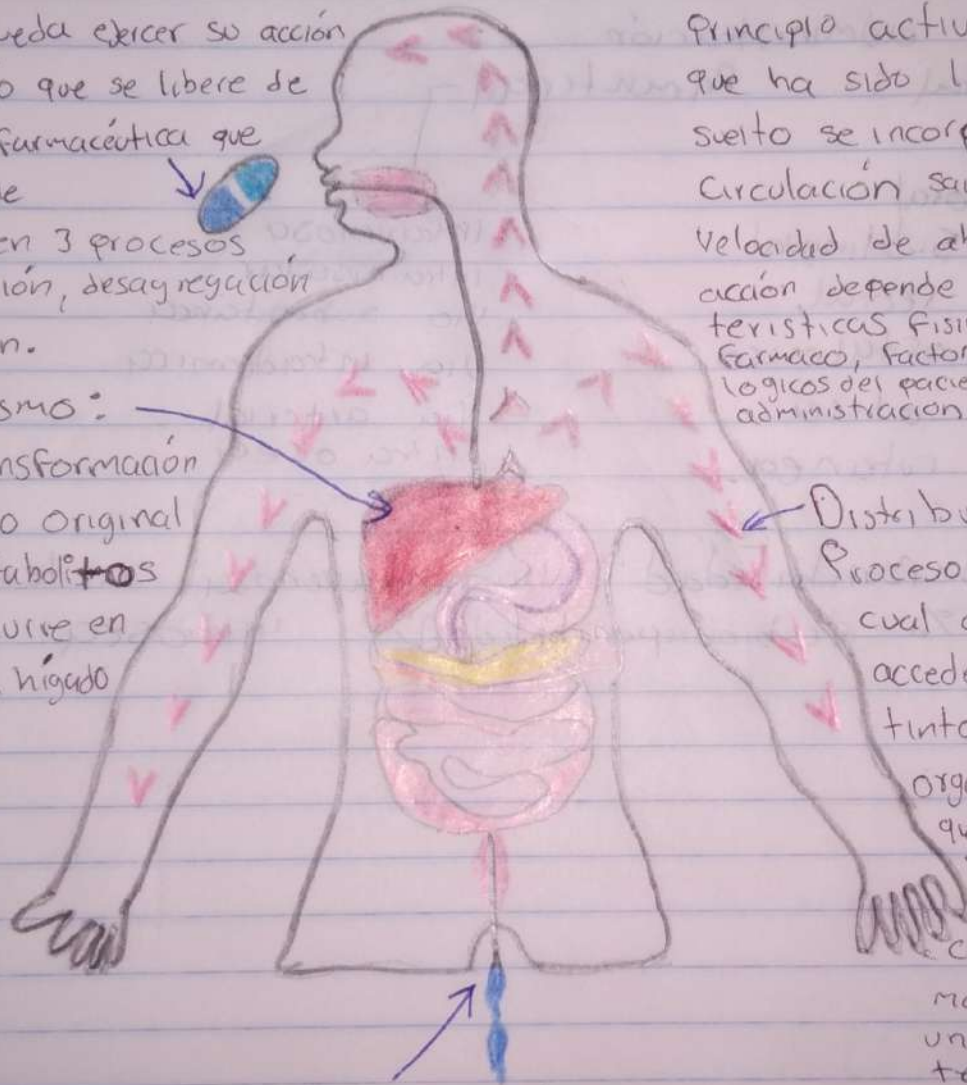 ueda ejercer su acción
o que se libere de
farmacéutica que
e
en 3 procesos
ión, desagregación
n.
smo:
nsformación
o original
tabolitos
urre en
hígado
Principio activ
que ha sido l
suelto se incor
Circulación sa
Velocidad de a
acción depende
teristicas fisi
farmaco, factor
logicos del pacie
administracion
Distribu
Proceso
cual
accede
tinto
orga
qu
c
mo
un
tr